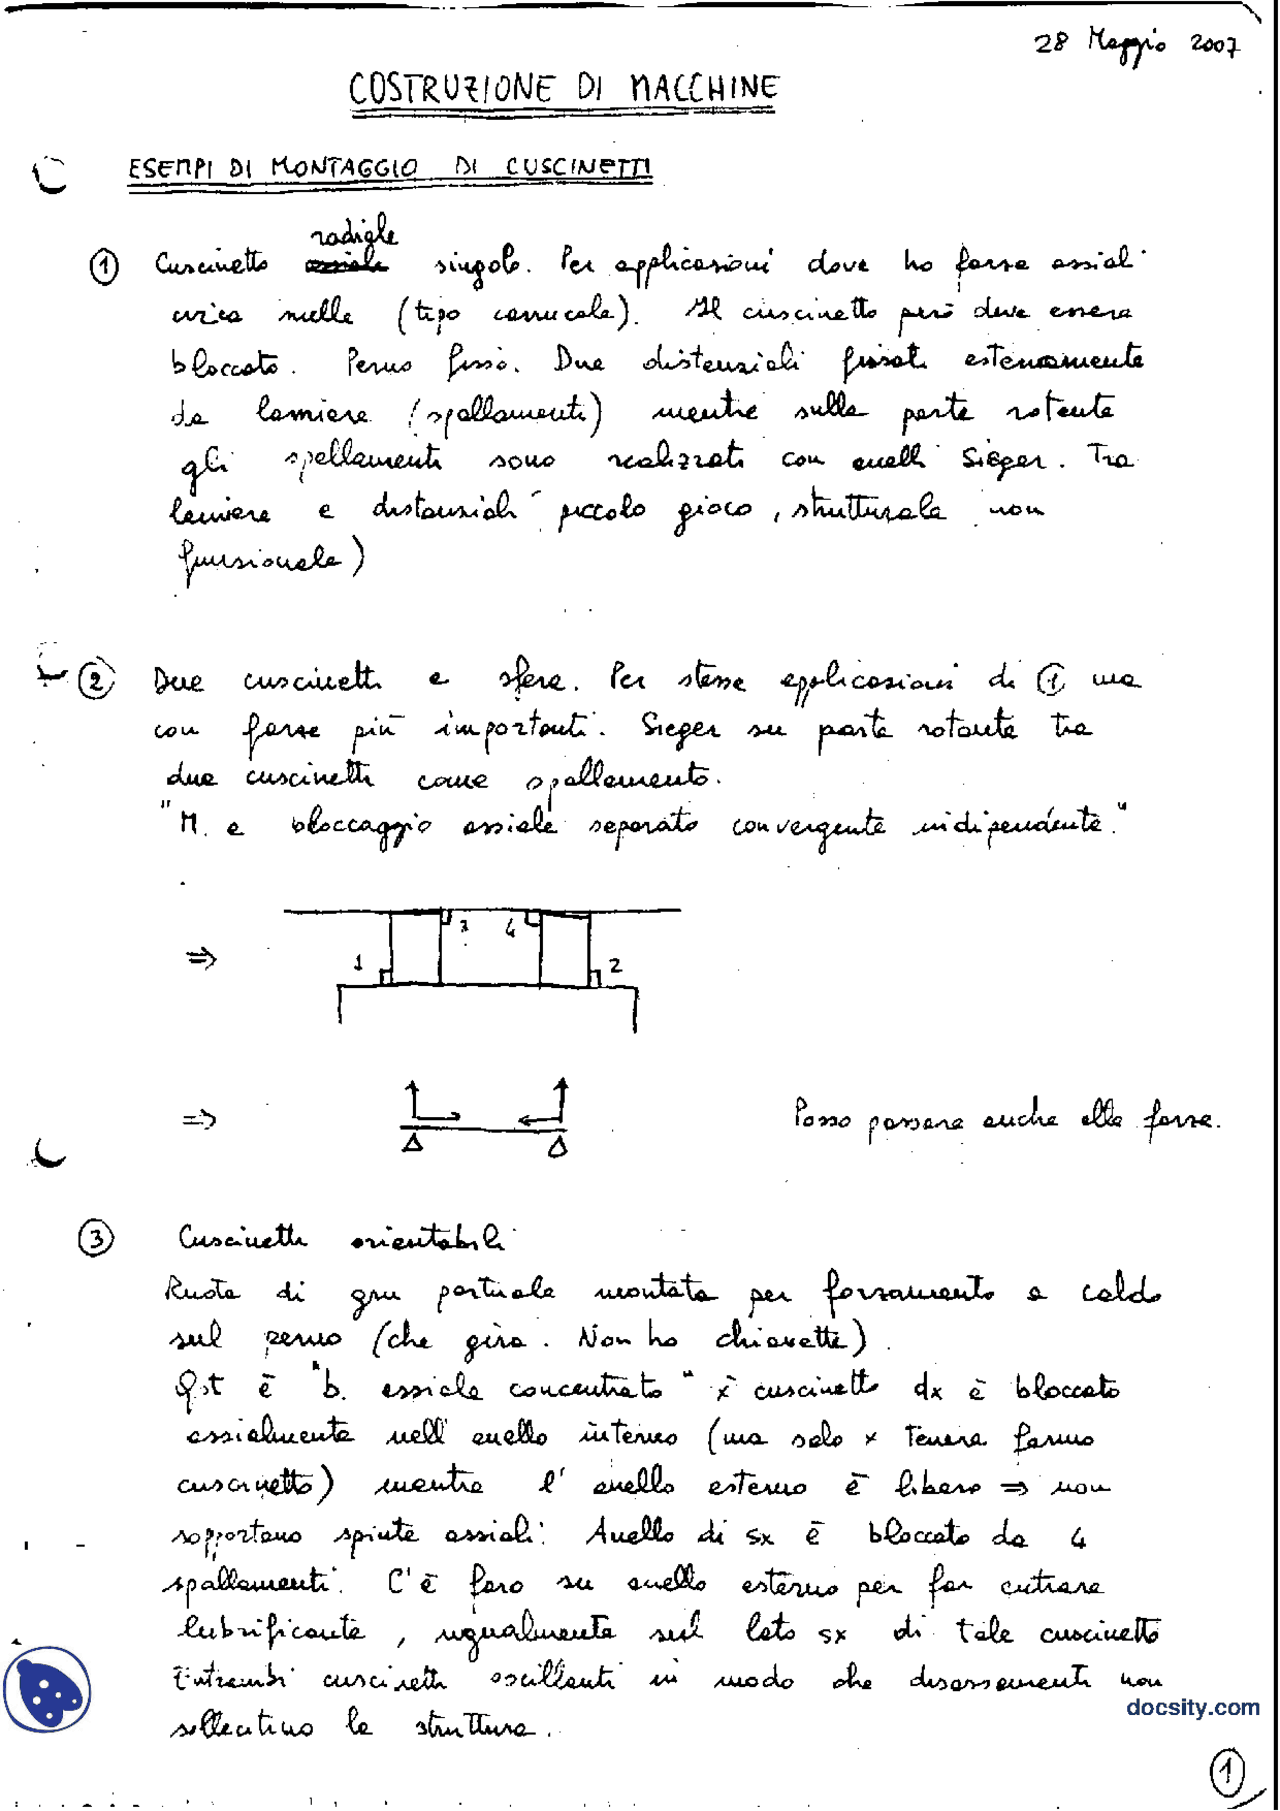 28 Maggio 2007
COSTRUZIONE DI MACCHINE
ESEMPI DI MONTAGGIO DI CUSCINETTI
radiale
① Cuscinetto assiale singolo. Per applicazioni dove ho forze assiali
circa nulle (tipo carrucola). Il cuscinetto però deve essere
bloccato. Perno fisso. Due distanziali fissati esternamente
da lamiere (spallamenti) mentre sulla parte rotante
gli spallamenti sono realizzati con anelli Sieger. Tra
lamiere e distanziali piccolo gioco, strutturale non
funzionale)
② Due cuscinetti a sfera. Per stesse applicazioni di ① ma
con forze più importanti. Sieger su parte rotante tra
due cuscinetti come spallamento.
"M. a bloccaggio assiale separato convergente indipendente."
3 4
⇒ 1 2
⇒ Posso passare anche alle forze.
③ Cuscinetti orientabili
Ruota di gru portuale montata per forzamento a caldo
sul perno (che gira. Non ho chiavette).
Qst è "b. assiale concentrato" x' cuscinetto dx è bloccato
assialmente nell' anello interno (ma solo x tenere fermo
cuscinetto) mentre l' anello esterno è libero ⇒ non
sopportano spinte assiali. Anello di sx è bloccato da 4
spallamenti. C'è foro su anello esterno per far entrare
lubrificante, ugualmente sul lato sx di tale cuscinetto
Entrambi cuscinetti oscillanti in modo che disassamenti non
sollecitino la struttura.
docsity.com
①